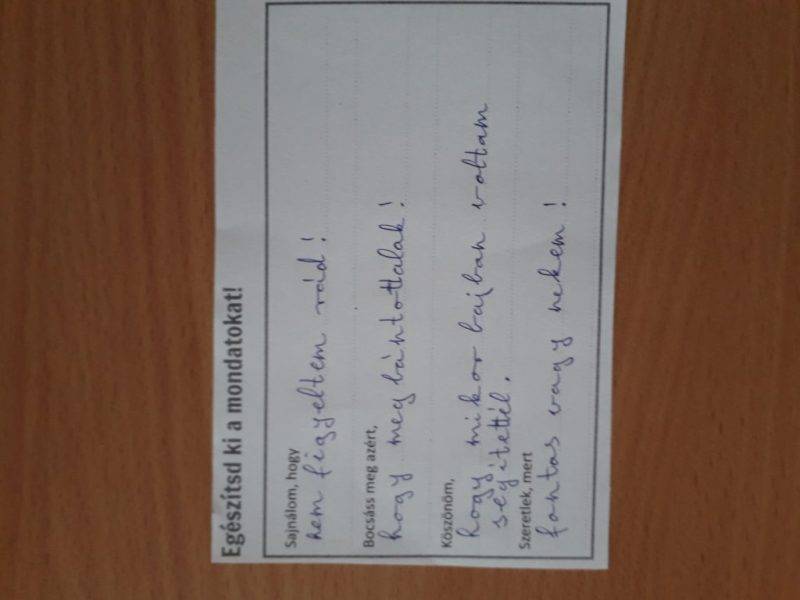 Egészítsd ki a mondatokat!
Sajnálom, hogy
nem figyeltem rád!
Bocsáss meg azért,
hogy megbántottalak!
Köszönöm,
hogy mikor bajban voltam
segítettél.
Szeretlek, mert
fontos vagy nekem!